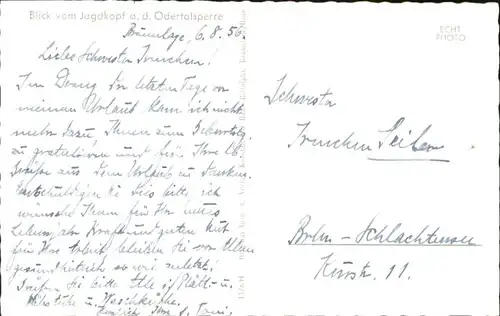 Blick vom Jagdkopf a. d. Odertalsperre
Braunlage, 6. 8. 56.
Liebes Schwester Irmchen!
Im Drang der letzten Tage vor
meinem Urlaub kam ich nicht
mehr dazu Ihnen zum Geburtstag
zu gratulieren und für Ihre lb.
Grüße aus dem Urlaub zu danken.
Entschuldigen Sie dies bitte ich
wünsche Ihnen für Ihr neues
Lebensjahr Kraft und guten Mut
für Ihre Arbeit bleiben Sie vor Allem
gesundheitlich so wie zuletzt!
Grüßen Sie bitte Alle Plätt- u.
Nähstube u. Waschküche.
Herzlich Ihre S. Toni
ECHT
PHOTO
Schwester
Irmchen
Berlin-Schlachtensee
Kurstr. 11.